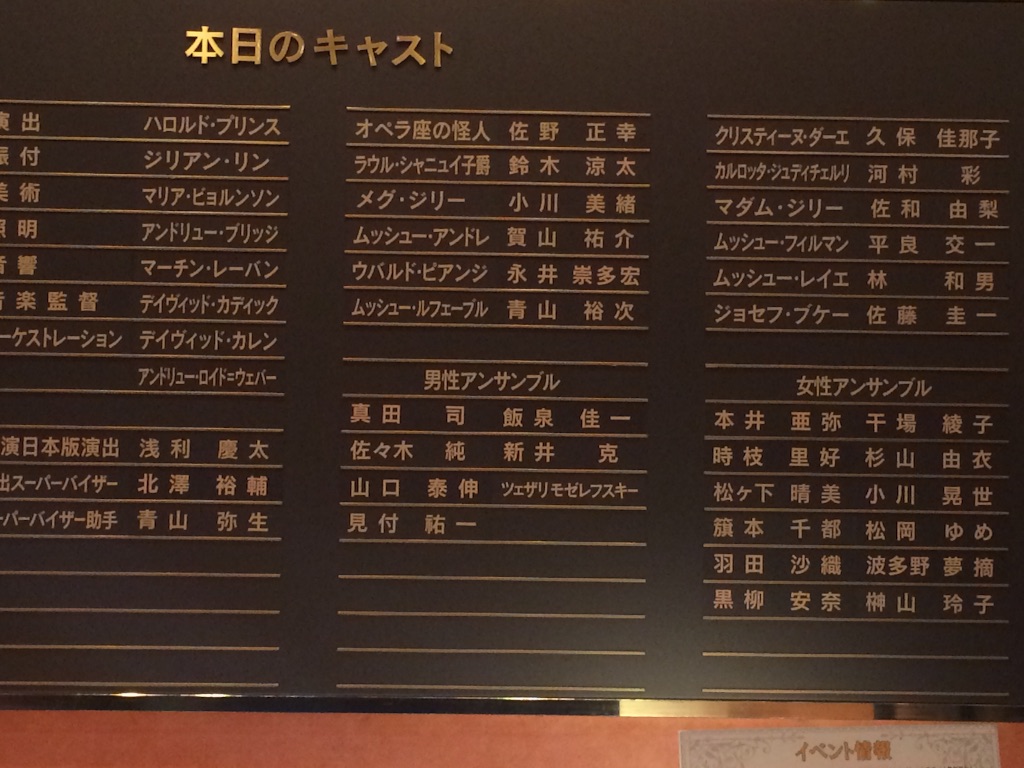 本日のキャスト
演出 ハロルド・プリンス
振付 ジリアン・リン
美術 マリア・ビョルンソン
照明 アンドリュー・ブリッジ
音響 マーチン・レーバン
音楽監督 デイヴィッド・カディック
ーケストレーション デイヴィッド・カレン
アンドリュー・ロイド=ウェバー
演日本版演出 浅利 慶太
出スーパーバイザー 北澤 裕輔
ーパーバイザー助手 青山 弥生
オペラ座の怪人 佐野 正幸
ラウル・シャニュイ子爵 鈴木 涼太
メグ・ジリー 小川 美緒
ムッシュー・アンドレ 賀山 祐介
ウバルド・ピアンジ 永井 崇多宏
ムッシュー・ルフェーブル 青山 裕次
男性アンサンブル
真田 司 飯泉 佳一
佐々木 純 新井 克
山口 泰伸 ツェザリモゼレフスキー
見付 祐一
クリスティーヌ・ダーエ 久保 佳那子
カルロッタ・ジュディチェルリ 河村 彩
マダム・ジリー 佐和 由梨
ムッシュー・フィルマン 平良 交一
ムッシュー・レイエ 林 和男
ジョセフ・ブケー 佐藤 圭一
女性アンサンブル
本井 亜弥 干場 綾子
時枝 里好 杉山 由衣
松ヶ下 晴美 小川 晃世
籏本 千都 松岡 ゆめ
羽田 沙織 波多野 夢摘
黒柳 安奈 榊山 玲子
イベント情報